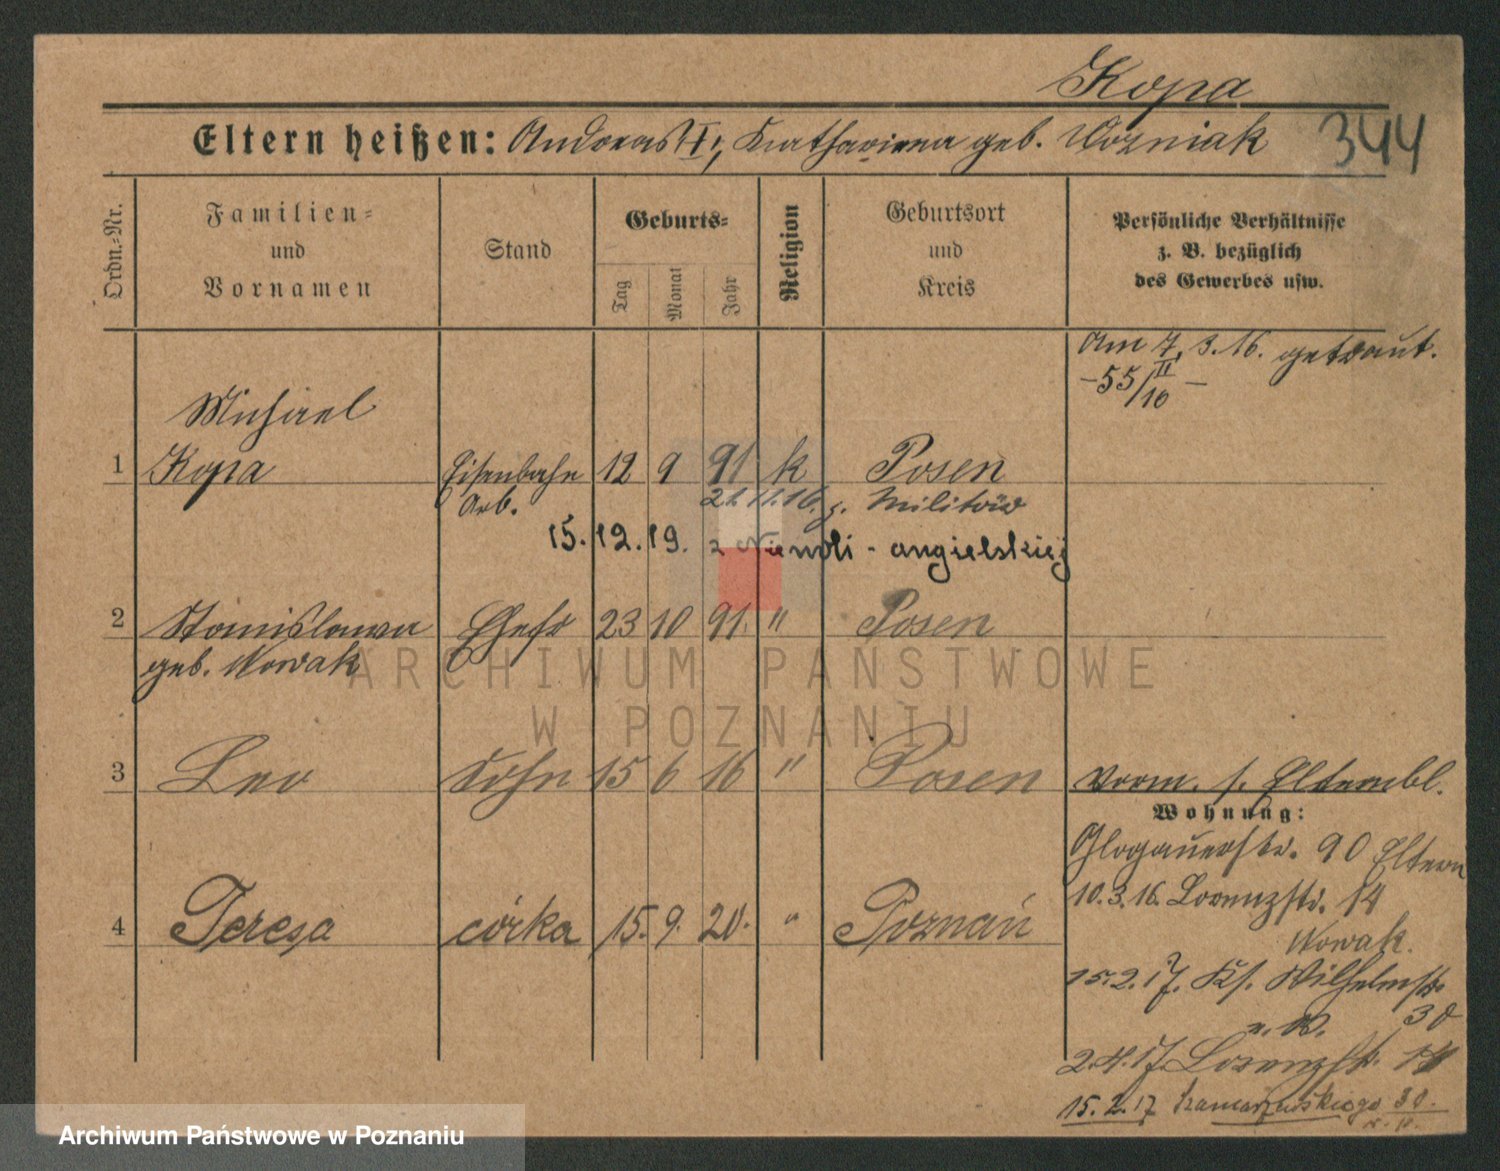 Kopa
Eltern heißen: Andreas I, Katharina geb. Wozniak 344
Ordn.-Nr.
Familien- und Vornamen
Stand
Geburts-
Tag
Monat
Jahr
Religion
Geburtsort und Kreis
Persönliche Verhältnisse
z. B. bezüglich
des Gewerbes usw.
Am 7. 3. 16. getraut.
-55/II 16-
Michael
1 Kopa Eisenbahn 12 9 91 k Posen
Arb. 21.11.16. z. Militär
15. 12. 19. z Niewoli - angielskiej
2 Stanislawa Ehefr 23 10 91. " Posen
geb. Nowak
3 Leo Sohn 15 6 16 " Posen
Vorm. s. Elternbl.
Wohnung:
Glogauerstr. 90 Eltern
10.3.16. Lorenzstr. 14
Nowak.
4 Teresa córka 15. 9. 20. " Poznań
15.2.17. Ks. Wilhelmstr
30
2.4.17. Lorenzstr. 14
15.2.17 30.
ARCHIWUM PAŃSTWOWE
W POZNANIU
Archiwum Państwowe w Poznaniu